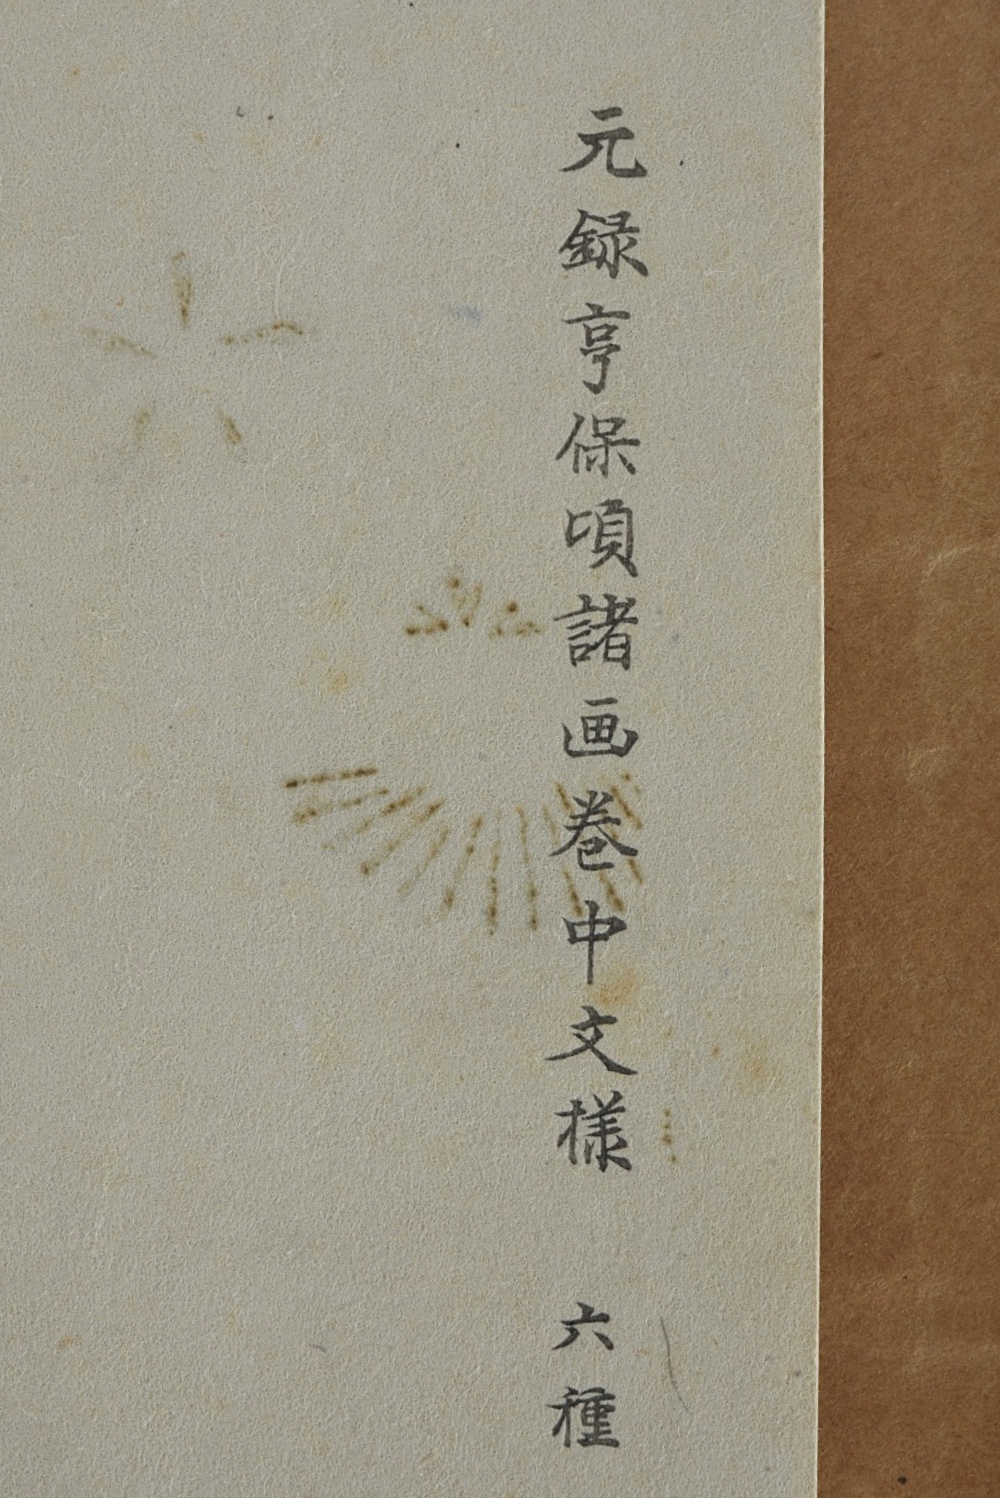 元録亨保頃諸画巻中文様　六種